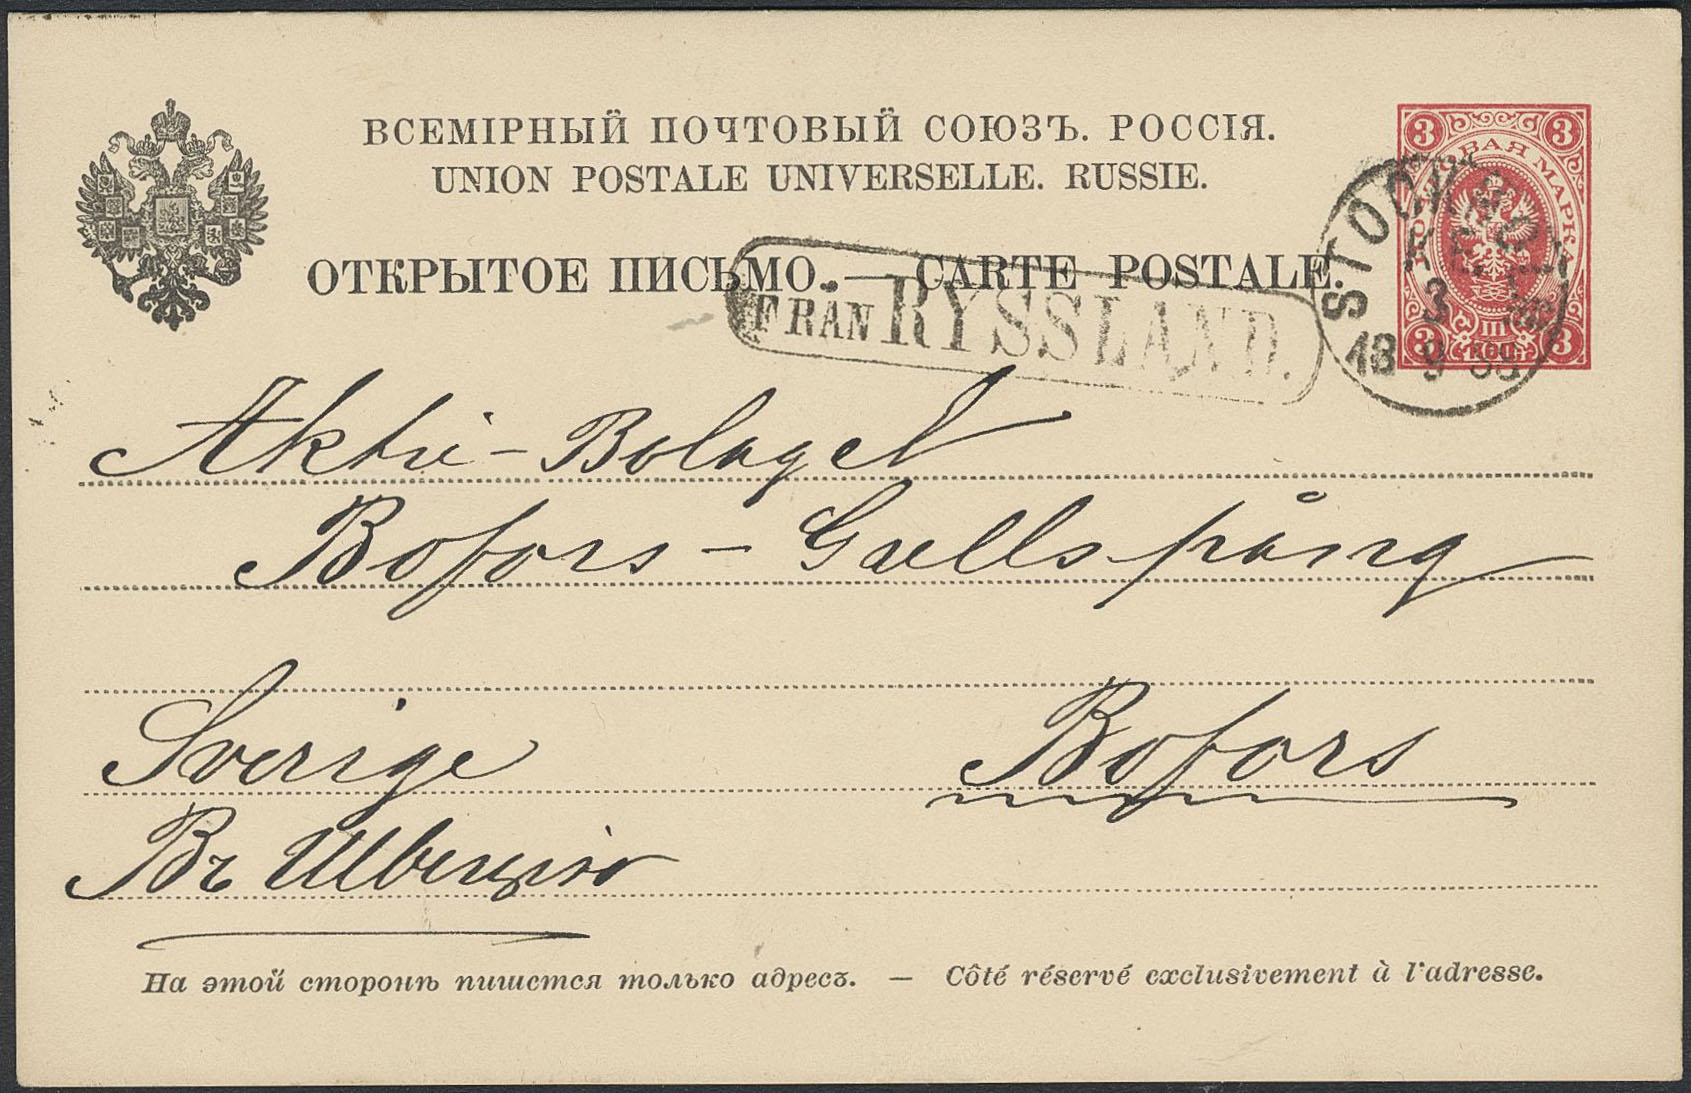 ВСЕМІРНЫЙ ПОЧТОВЫЙ СОЮЗЪ. РОССІЯ.
UNION POSTALE UNIVERSELLE. RUSSIE.
ОТКРЫТОЕ ПИСЬМО. — CARTE POSTALE.
3 3
ПОЧТОВАЯ МАРКА
III
3 КОП. 3
STOCKHOLM
3
18 9
FRÅN RYSSLAND.
Aktie-Bolaget
Bofors-Gullspång
Sverige Bofors
Въ Швецію
На этой сторонѣ пишется только адресъ. — Côté réservé exclusivement à l'adresse.